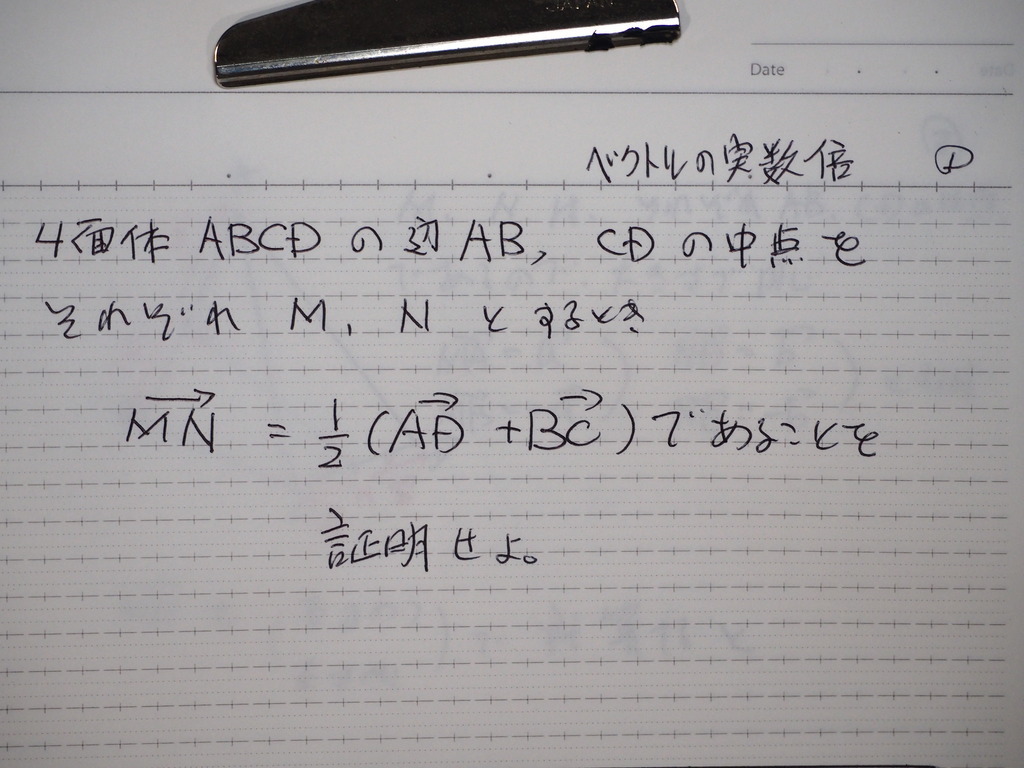 Date
ベクトルの実数倍 ①
4面体 ABCD の辺 AB, CD の中点を
それぞれ M, N とするとき
$\overrightarrow{MN} = \frac{1}{2}(\overrightarrow{AD} + \overrightarrow{BC})$ であることを
証明せよ。